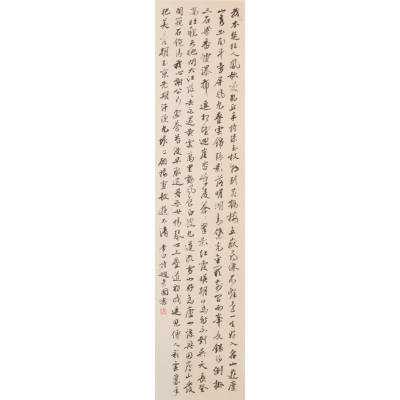 我本楚狂人鳳歌笑孔丘手持綠玉杖朝別黃鶴樓五岳尋仙不辭遠一生好入名山遊廬
山秀出南斗傍屏風九疊雲錦張影落明湖青黛光金闕前開二峰長銀河倒掛
三石梁香爐瀑布遙相望迴崖沓嶂凌蒼蒼翠影紅霞映朝日鳥飛不到吳天長登
高壯觀天地間大江茫茫去不還黃雲萬里動風色白波九道流雪山好為廬山謠興因廬山發
閒窺石鏡清我心謝公行處蒼苔沒早服還丹無世情琴心三疊道初成遙見仙人彩雲裏手
把芙蓉朝玉京先期汗漫九垓上願接盧敖遊太清 李白詩